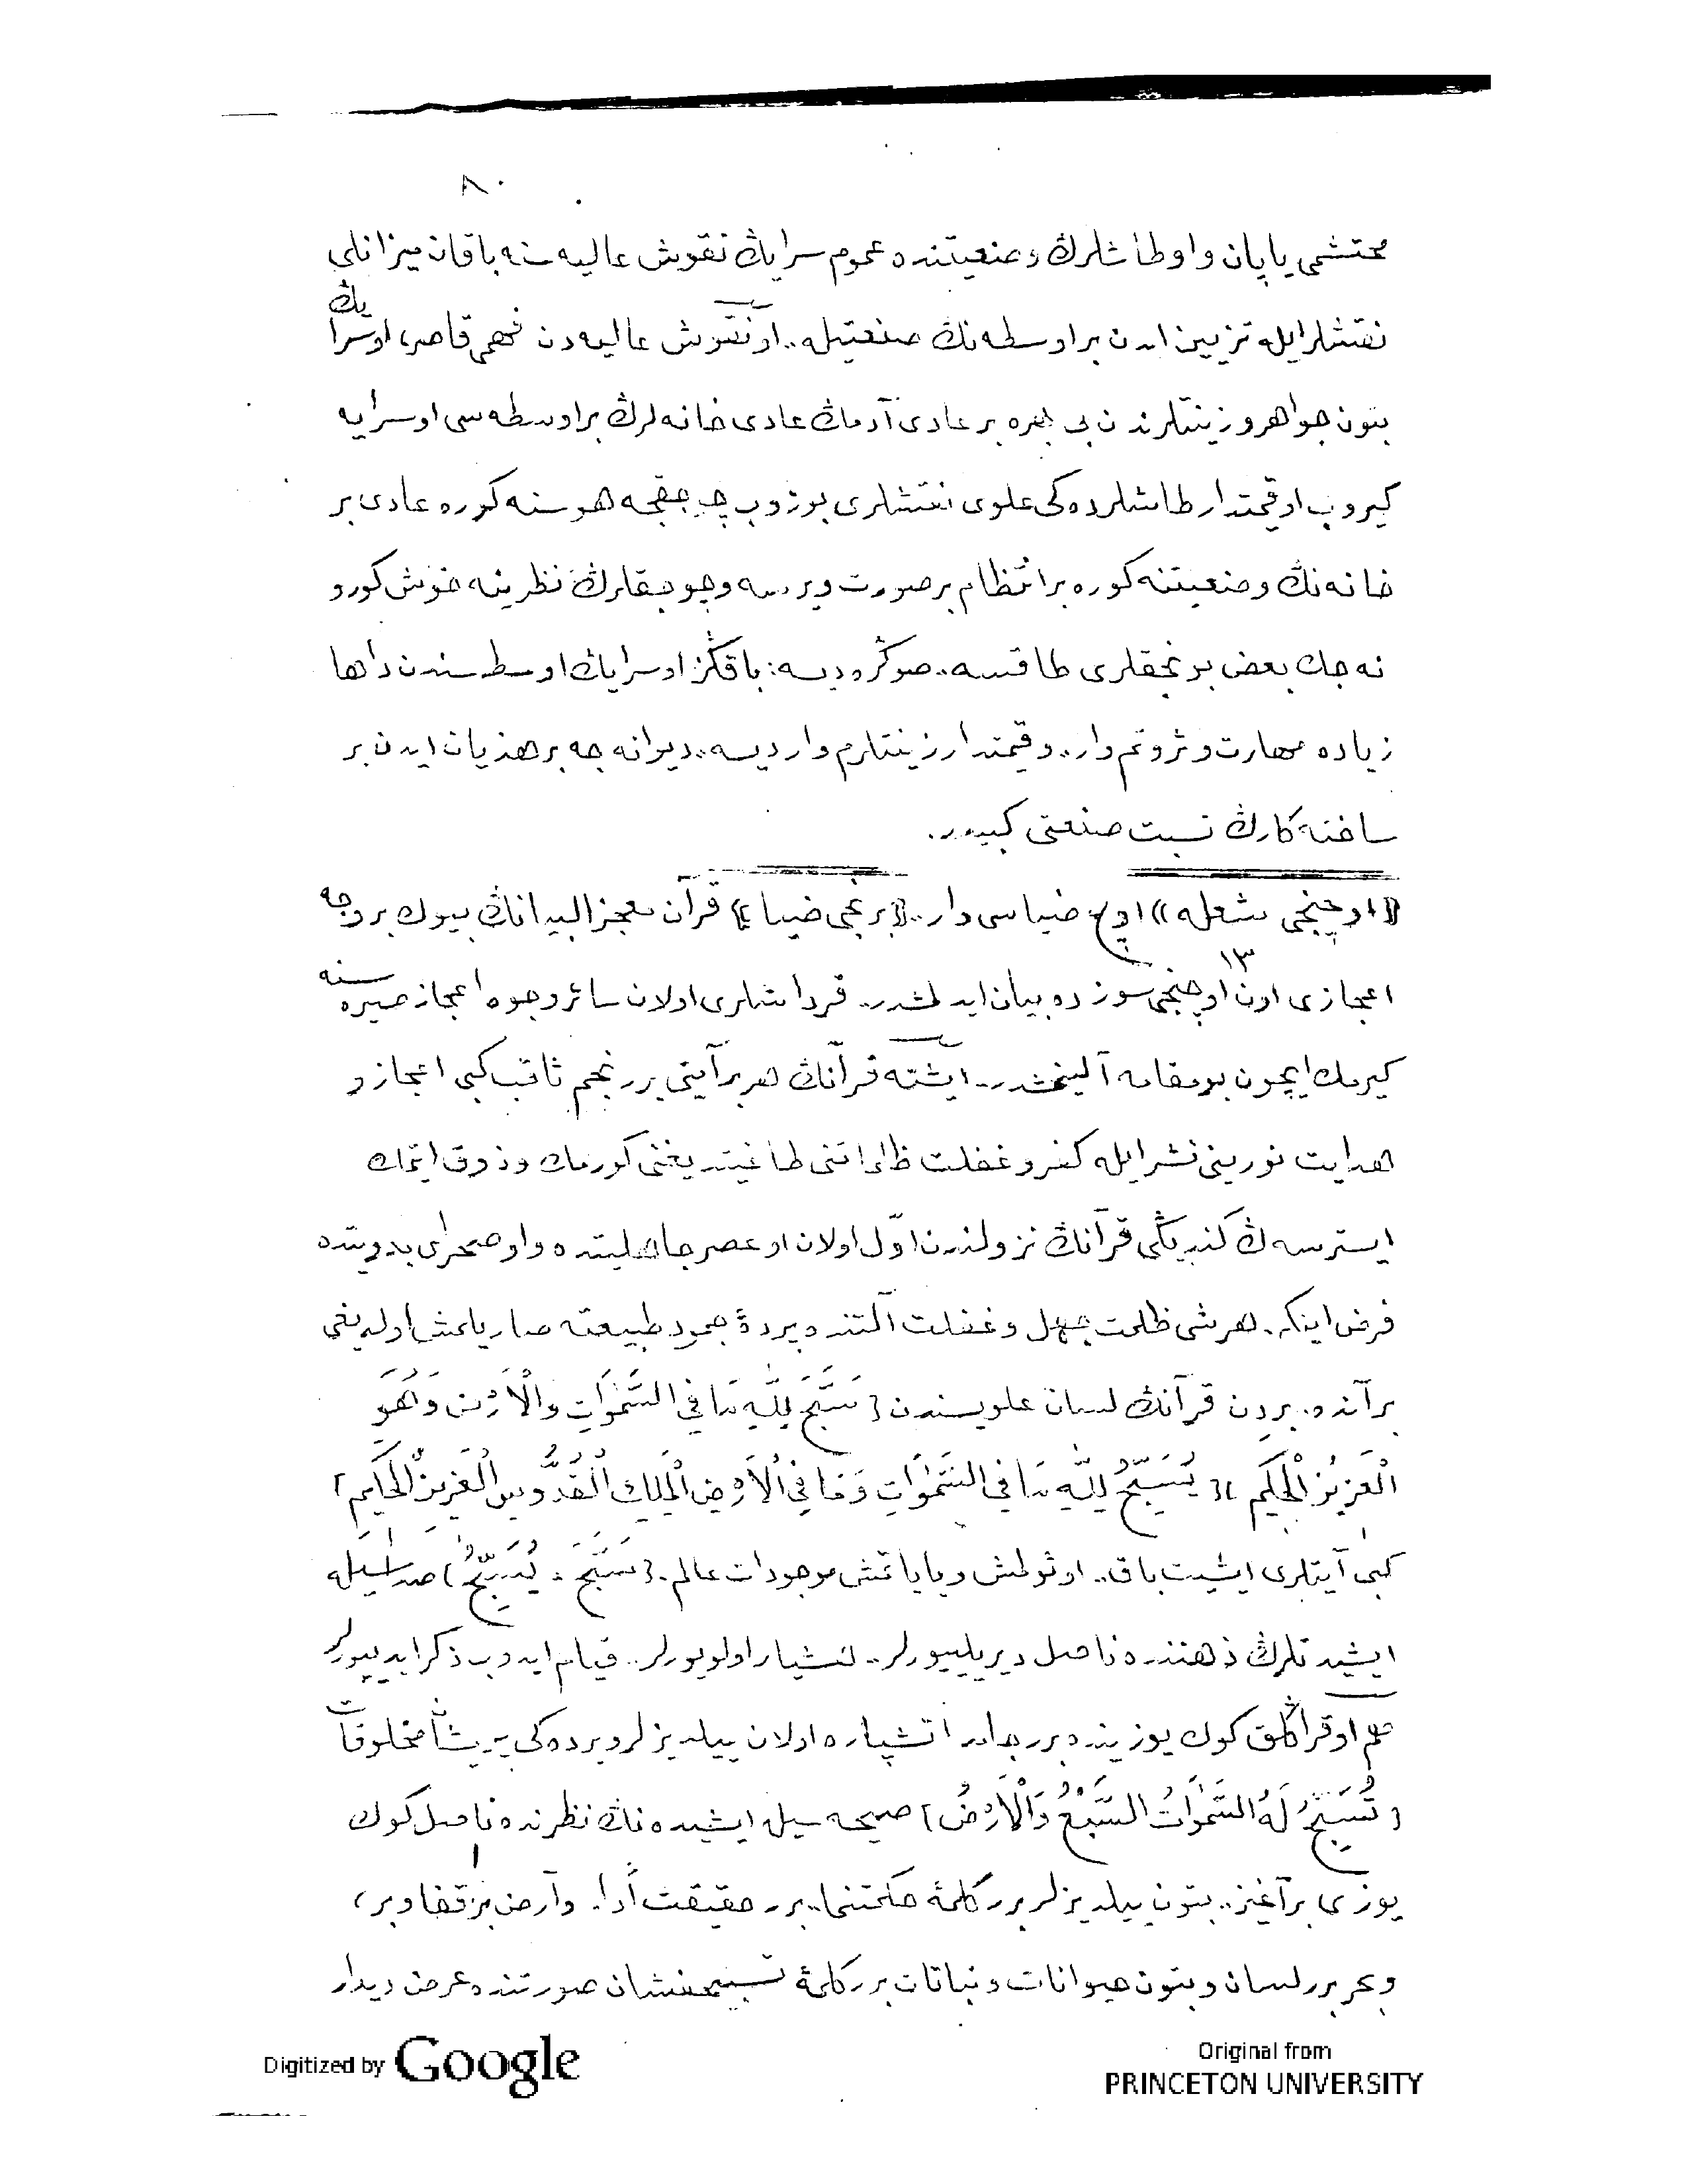 ٨٠
محتشمی یاپان واوطاشلرڭ وضعیتنده عموم سرایڭ نقوش عالیه سنه باقان میزانلی
نقشلرایله تزیین ایدن براوسطه نڭ صنعتیله.. اونقوش عالیه دن فهمی قاصر، اوسرایڭ
بتون جواهر و زینتلرندن بی بهره بر عادی آدمڭ عادی خانه لرڭ براوسطه سی اوسرایه
کیروب اوقیمتدار طاشلرده کی علوی نقشلری بوزوب چوجقجه هوسنه کوره عادی بر
خانه نڭ وضعیتنه کوره برانتظام برصورت ویرسه وچوجقلرڭ نظرینه خوش کورو
نه جك بعض بونجقلری طاقسه.. صوڭره دیسه: باقڭز اوسرایڭ اوسطه سندن داها
زیاده مهارت و ثروتم وار.. وقیمتدار زینتلرم وار دیسه.. دیوانه جه برهذیان ایدن بر
ساخته کارڭ نسبت صنعتی کبیدر.
«اوچنجی شعله» اوچ ضیاسی وار.. «برنجی ضیا» قرآن معجزالبیانڭ بیوك بر وجه
اعجازی اون اوچنجی ١٣ سوزده بیان ایدلمشدر.. قرداشلری اولان سائر وجوه اعجاز صیره سنه
کیرمك ایچون بومقامه آلینمشدر.. ایشته قرآنڭ هربرآیتی برر نجم ثاقب کبی اعجاز و
هدایت نورینی نشر ایله کفر و غفلت ظلماتنی طاغیتدیغنی کورمك وذوق ایتمك
ایسترسه ڭ کندیڭی قرآنڭ نزولندن اوّل اولان اوعصر جاهلیتده واوصحرای بدویتده
فرض ایتکه. هرشی ظلمت جهل و غفلت آلتنده پردۀ جمود طبیعته صاریلمش اولدیغی
برآنده. بردن قرآنڭ لسان علویسندن ﴿ سَبَّحَ لِلّٰهِ مَا فِی السَّمٰوَاتِ وَالْاَرْضِ وَهُوَ
الْعَزِیزُ الْحَكِیمُ ﴾﴿ یُسَبِّحُ لِلّٰهِ مَا فِی السَّمٰوَاتِ وَمَا فِی الْاَرْضِ الْمَلِكِ الْقُدُّوسِ الْعَزِیزِ الْحَكِیمِ ﴾
کبی آیتلری ایشیت باق.. اوئولمش ویا یاتمش موجودات عالم. ﴿ سَبَّحَ ، یُسَبِّحُ ﴾ صداسیله
ایشیدنلرڭ ذهننده ناصل دیریلییورلر.. هشیار اولویورلر.. قیام ایدوب ذکر ایدییورلر
هم اوقراڭلق کوك یوزینده برر جامد آتشپاره اولان ییلدیزلر ویرده کی پریشان مخلوقات
﴿ تُسَبِّحُ لَهُ السَّمٰوَاتُ السَّبْعُ وَالْاَرْضُ ﴾ صیحه سیله ایشیده نڭ نظرنده ناصل کوك
یوزی برآغیز.. بتون ییلدیزلر برر کلمۀ حکمتنما.. برر حقیقت أدا. وارض برقفا و بر،
وبحر برر لسان وبتون حیوانات و نباتات برر کلمۀ تسبیحفشان صورتنده عرض دیدار
Digitized by Google
Original from
PRINCETON UNIVERSITY